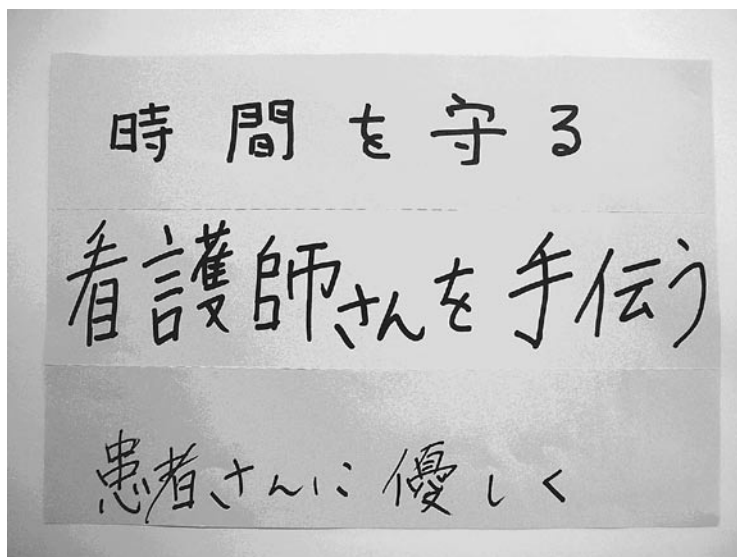 時間を守る
看護師さんを手伝う
患者さんに優しく